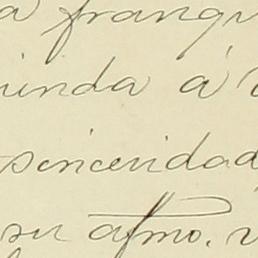 a franqu
ienda á
sinceridad
su afmo.